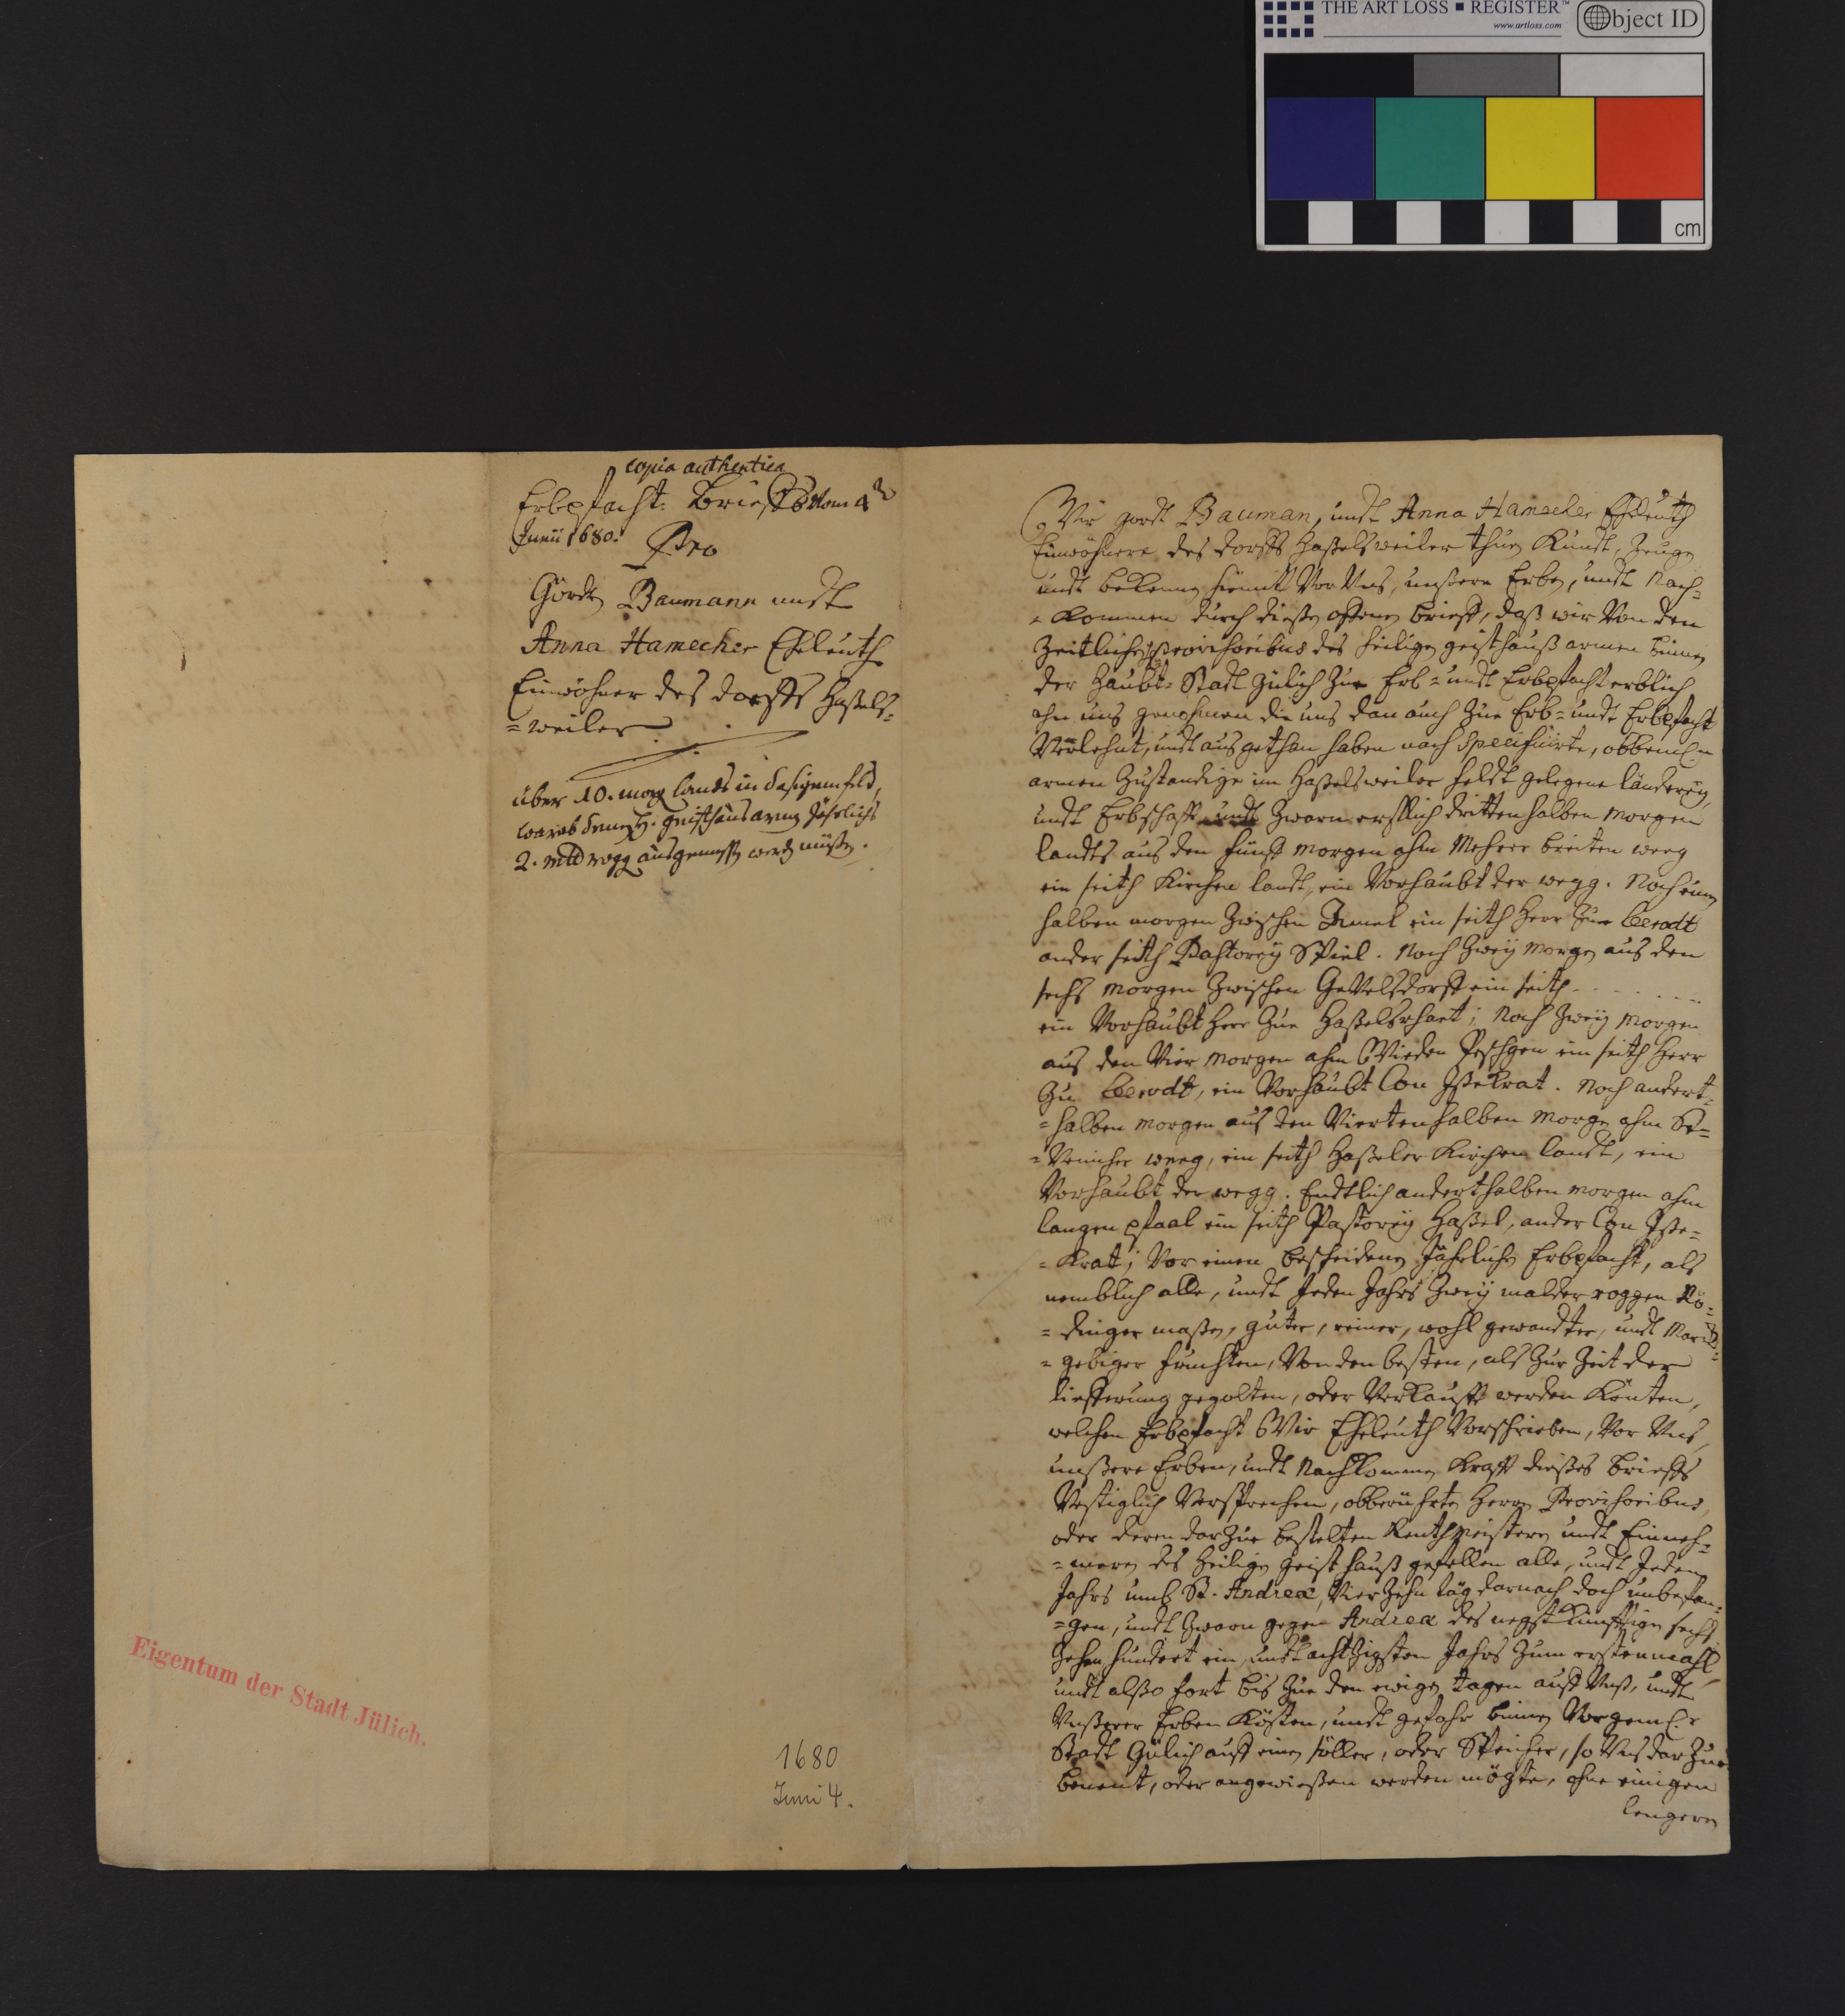 THE ART LOSS REGISTER™
www.artloss.com
Object ID
cm
copia authentica
Erbpfacht. Brieff vom 4
Junii 1680.
Pro
Gördt Baumann undt
Anna Hamecher Eheleuth
Einwöhner des dorffs Haßels=
=weiler
über 10. morg lands in
geisthaus armen jahrlichs
2. mld rogg ausgemessen werden müßen.
Eigentum der Stadt Jülich.
1680
Juni 4.
Wir Gordt Bauman, undt Anna Hamecher Eheleuth
Einwöhnere des dorffs Haßelsweiler thun Kundt, Zeugen
undt bekennen hiemit Vor Uns, unßere Erben, undt Nach=
=kommen durch dießen offenen brieff, daß wir Von den
Zeitlichen Provisoribus des heiligen geisthauß armen binnen
der Haubt=Stadt Gülich Zur Erb= undt Erbpfacht erblich
ahn uns genohmen die uns dan auch Zur Erb= undt Erbpfacht
Verlehnt, undt ausgethan haben nach Specificirte, obbem.
armen Zustandige im Haßelsweiler feldt gelegene länderey,
undt Erbschafft undt Zwarn erstlich drittenhalben Morgen
landts aus den fünff Morgen ahm Mehrer breiten weeg
ein seith Kirchen landt, ein Vorhaubt der wegg. Noch einen
halben morgen Zwischen Jrmel ein seith Herr Zur Berodt
ander seith Pastorey Spiel. Noch Zwey Morgen aus den
sechs Morgen Zwischen Gevelsdorff ein seith . . . . . .
ein Vorhaubt Herr Zur Haßelsrhaet; Noch Zwey Morgen
aus den Vier Morgen ahm Wieden Peschgen ein seith Herr
Zu Berodt, ein Vorhaubt Con Jßekrat. Noch andert=
=halben morgen aus den Viertenhalben Morgen ahm Se=
=Venicher weeg, ein seith Haßeler Kirchen landt, ein
Vorhaubt der wegg. Endtlich anderthalben morgen ahm
langen pfaal ein seith Pastorey Haßel, ander Con Jße=
=krat; Vor einen bescheidenen Jährlichen Erbpfacht, als
nemblich alle, undt Jeden Jahrs Zwey malder roggen Rö=
=dinger maßen, guter, reiner, wohl gewandter, undt Marck=
=gebiger fruchten, Von den besten, als Zur Zeit der
liefferung gegolten, oder Verkaufft werden Könten,
welchen Erbpfacht Wir Eheleuth Vorschrieben, Vor Uns,
unßere Erben, undt Nachkommen Krafft dießes brieffs
Vestiglich Versprechen, obberührten Herren Provisoribus,
oder deren darzue bestelten Renthmeistern undt Einneh=
=meren des Heiligen Geist hauß gefellen alle, undt Jeden
Jahrs umb St. Andreæ, Vierzehn täg darnach doch unbefan=
=gen, undt Zwarn gegen Andreæ des negstkünfftigen sechs
Zehen hundert ein, undt achtzigsten Jahrs Zum erstenmahl,
undt alßo fort bis Zue den ewigen tagen auff Unß, undt
Unßerer Erben Kösten, undt gefahr binnen Vorgem.
Stadt Gülich auff einen söller, oder Speicher, so Uns darzue
benent, oder angewießen werden mögte, ohne einigen
lengeren